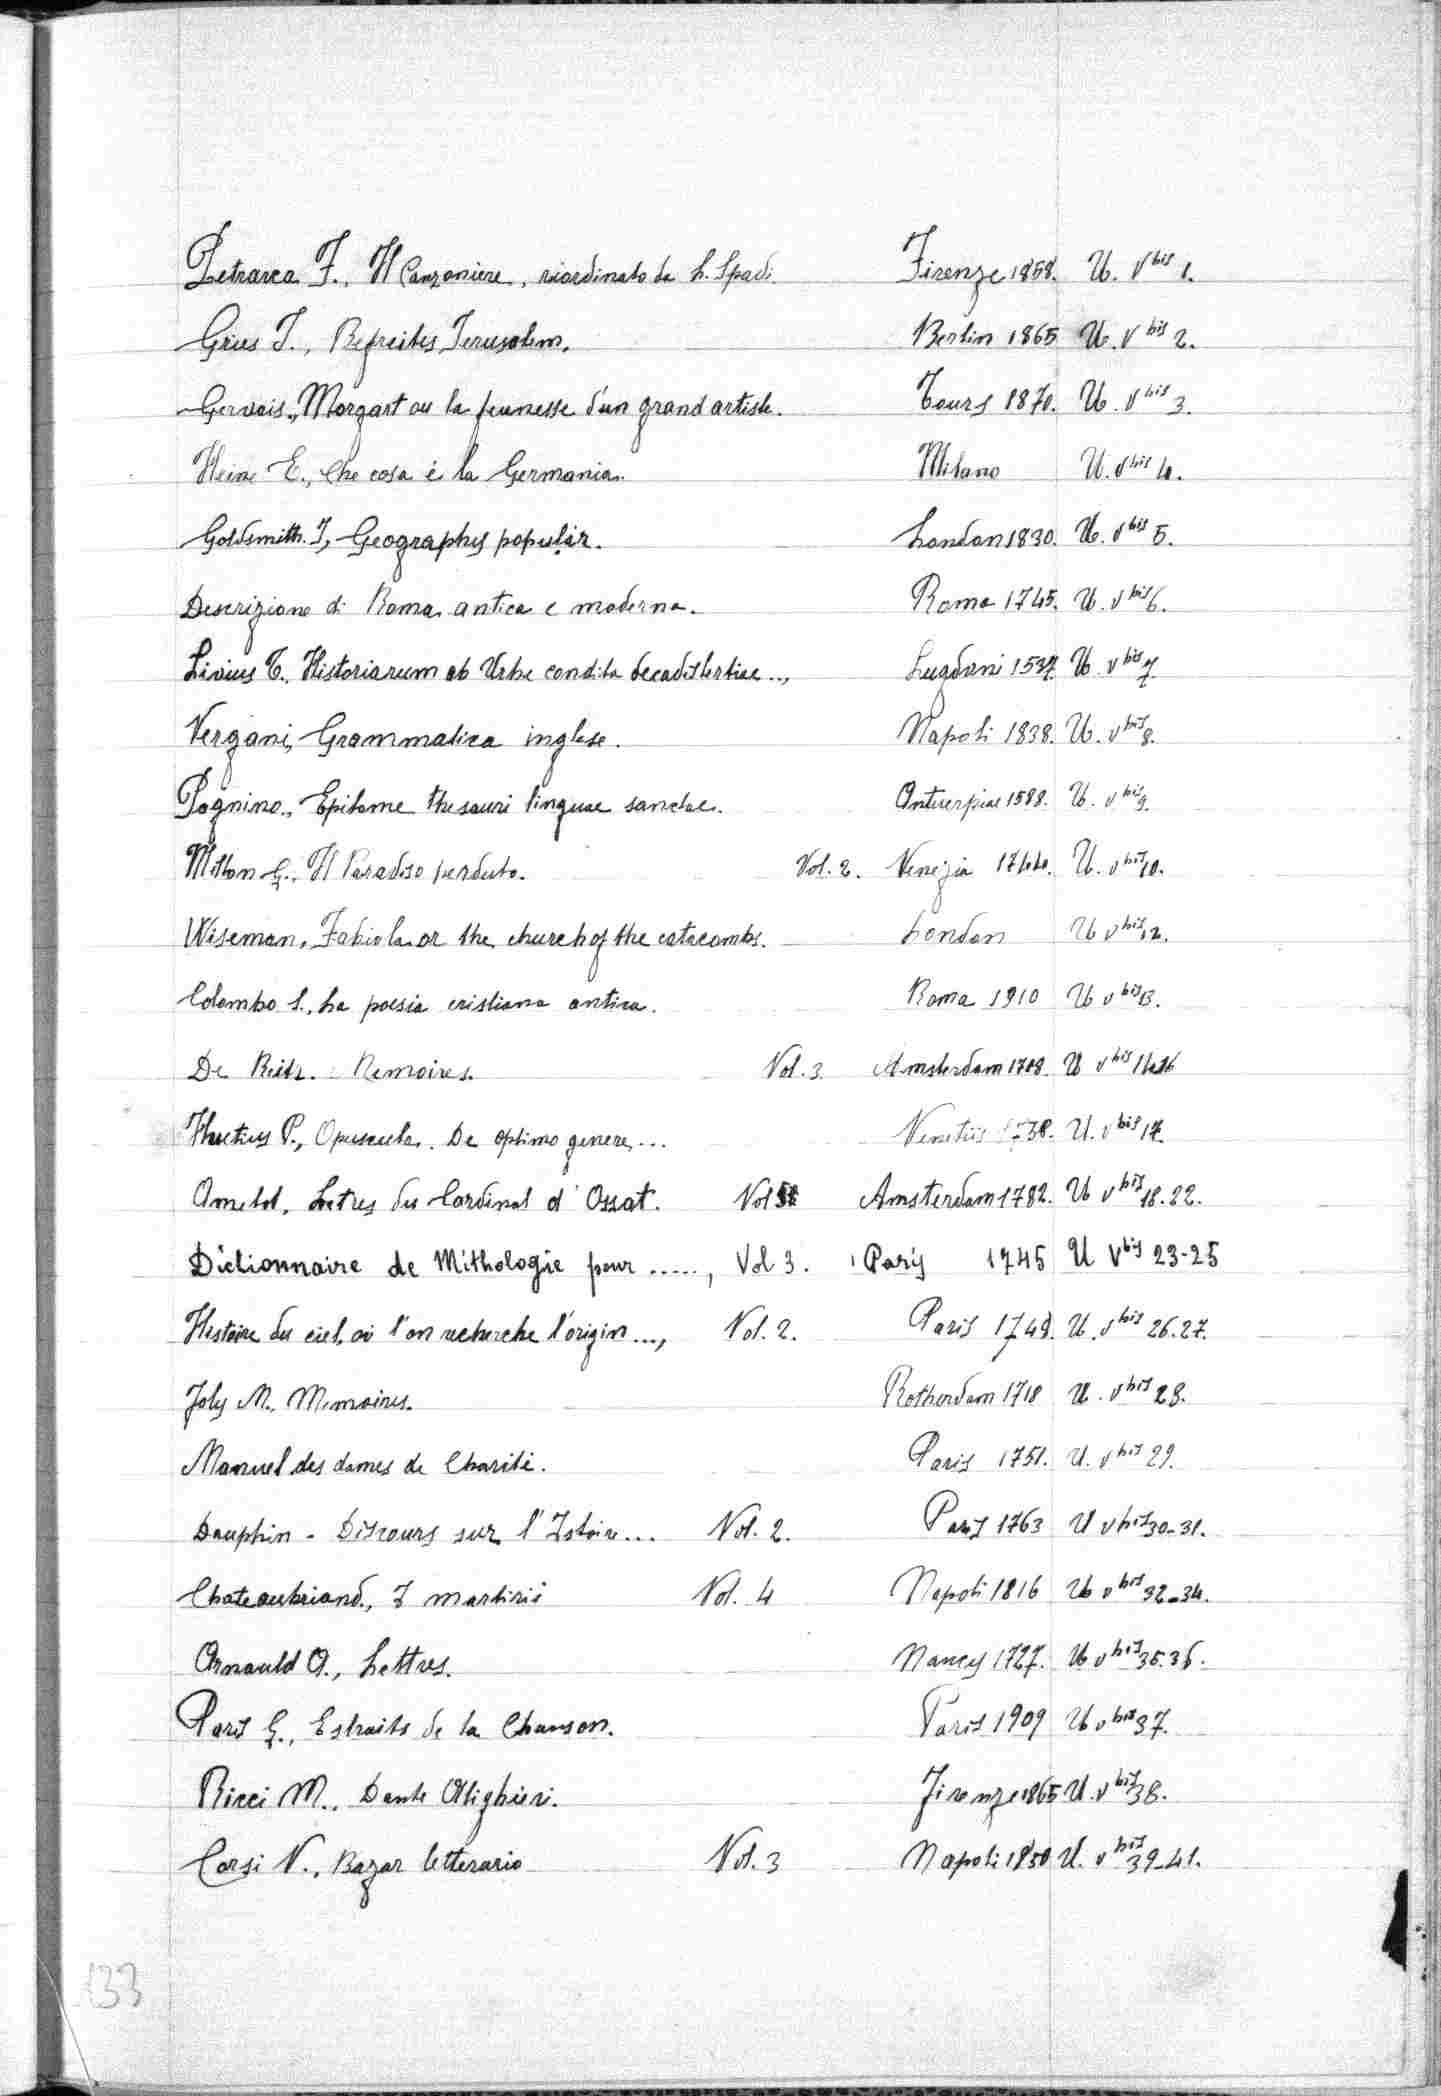 Petrarca F., Il Canzoniere, riordinato da L. Spadi. Firenze 1858. U. V bis 1.
Grius J., Befreites Jerusalem. Berlin 1865 U. V bis 2.
Gervais., Morzart ou la jeunesse d'un grand artiste. Tours 1870. U. V bis 3.
Heine E., Che cosa è la Germania. Milano U. V bis 4.
Goldsmith. J, Geographij popular. London 1830. U. V bis 5.
Descrizione di Roma antica e moderna. Roma 1745. U. V bis 6.
Livius T. Historiarum ab Urbe condita decadis tertiae.., Lugduni 1537. U. V bis 7.
Vergani, Grammatica inglese. Napoli 1838. U. V bis 8.
Pagnino., Epitome thesauri linguae sanctae. Antuerpiae 1588. U. V bis 9.
Milton G., Il Paradiso perduto. Vol. 2. Venezia 1744. U. V bis 10.
Wiseman, Fabiola or the church of the catacombs. London U V bis 12.
Colombo S., La poesia cristiana antica. Roma 1910 U V bis 13.
De Reitz. Memoires. Vol. 3 Amsterdam U V bis
Huetius P., Opuscula. De optimo genere... Venetiis 1738. U. V bis 17.
Amelot, Letres du Cardinal d'Ossat. Vol 5 Amsterdam 1782. U V bis 18.22.
Dictionnaire de Mithologie pour ....., Vol 3. Paris 1745 U V bis 23-25
Histoire du ciel, où l'on recherche l'origin..., Vol. 2. Paris 1749. U. V bis 26.27.
Joly M. Memoires. Rotherdam 1718 U. V bis 28.
Manuel des dames de Charité. Paris 1751. U. V bis 29.
Dauphin - Discours sur l'Istoire... Vol. 2. Paris 1763 U V bis 30-31.
Chateaubriand., I martirii Vol. 4 Napoli 1816 U V bis 32-34.
Arnauld A., Lettres. Nancy 1727. U V bis 35.36.
Paris G., Estraits de la Chanson. Paris 1909 U V bis 37.
Ricci M., Dante Alighieri. Firenze 1865 U. V bis 38.
Corsi V., Bazar letterario Vol. 3 Napoli 1850 U. V bis 39-41.
133